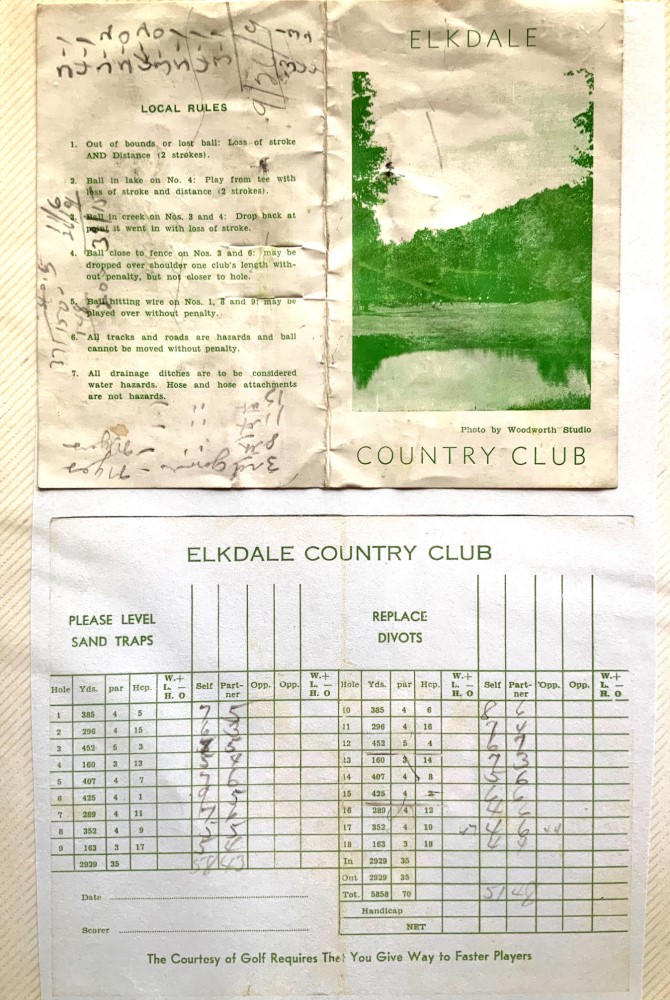 LOCAL RULES
1. Out of bounds or lost ball: Loss of stroke
AND Distance (2 strokes).
2. Ball in lake on No. 4: Play from tee with
loss of stroke and distance (2 strokes).
3. Ball in creek on Nos. 3 and 4: Drop back at
point it went in with loss of stroke.
4. Ball close to fence on Nos. 3 and 6: may be
dropped over shoulder one club's length with-
out penalty, but not closer to hole.
5. Ball hitting wire on Nos. 1, 8 and 9: may be
played over without penalty.
6. All tracks and roads are hazards and ball
cannot be moved without penalty.
7. All drainage ditches are to be considered
water hazards. Hose and hose attachments
are not hazards.
ELKDALE
Photo by Woodworth Studio
COUNTRY CLUB
ELKDALE COUNTRY CLUB
PLEASE LEVEL
SAND TRAPS
REPLACE
DIVOTS
Hole Yds. par Hcp. W.+ L. — H. O Self Part-ner Opp. Opp. W.+ L. — H. O
1 385 4 5 7 5
2 296 4 15 6 3
3 452 5 3 5
4 160 3 13 5 4
5 407 4 7 7 6
6 425 4 1
7 289 4 11 7 6
8 352 4 9 5 5
9 163 3 17
2929 35 58 43
Hole Yds. par Hcp. W.+ L. — H. O Self Part-ner Opp. Opp. W.+ L. — H. O
10 385 4 6 8 6
11 296 4 16 7 4
12 452 5 4 6 7
13 160 3 14 7 3
14 407 4 8 5 6
15 425 4 2
16 289 4 12 4 6
17 352 4 10 4 6
18 163 3 18 4
In 2929 35
Out 2929 35
Tot. 5858 70 51 48
Handicap
NET
Date
Scorer
The Courtesy of Golf Requires That You Give Way to Faster Players